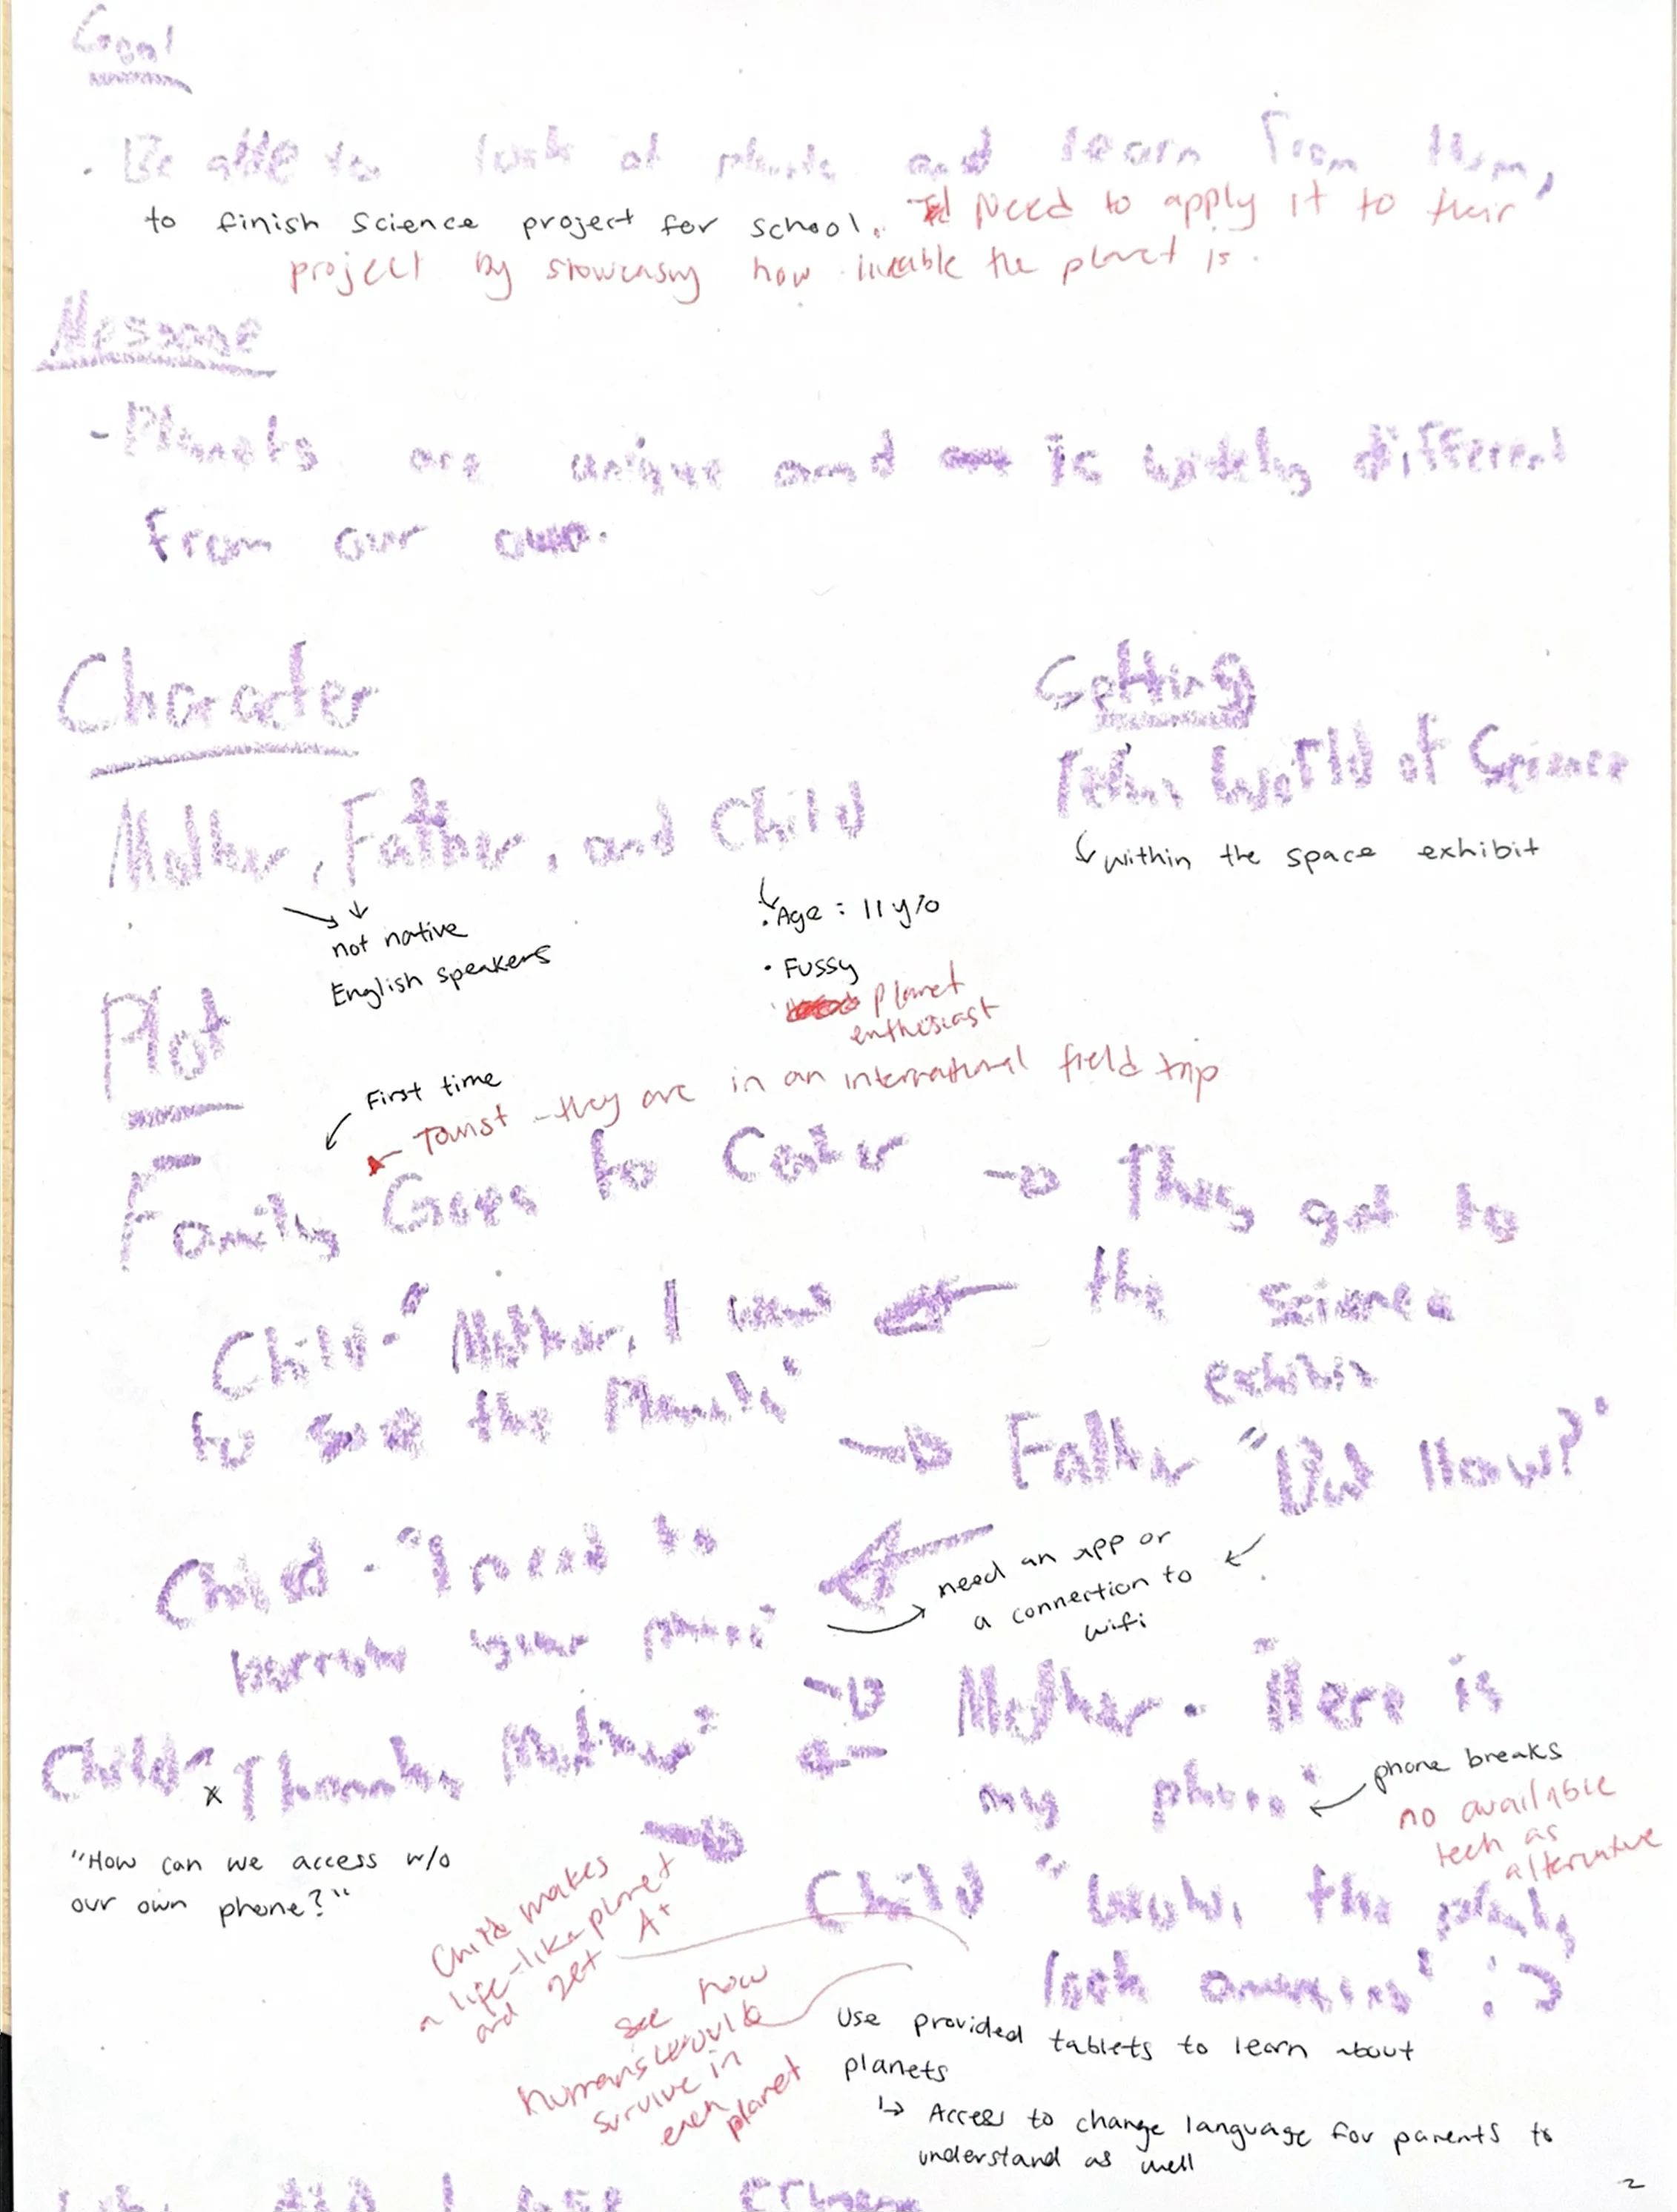 Goal
· Be able to look at planets and learn from them,
to finish science project for school. Need to apply it to their
project by showcasing how liveable the planet is.
Message
- Planets are unique and is widely different
from our own.
Character
Setting
Mother, Father, and Child
Telus World of Science
↳ within the space exhibit
not native
English speakers
· Age : 11 y/o
· Fussy
· planet
enthusiast
Plot
First time
Tourist - they are in an international field trip
Family Goes to Center → They got to
the science
exhibit
Child - "Mother, I want
to see the Planets"
→ Father "But How?"
Child - "I need to
borrow your phone"
need an app or
a connection to
wifi
→ Mother - "Here is
my phone"
phone breaks
no available
tech as
alternative
Child - "Thanks Mother"
"How can we access w/o
our own phone?"
Child "Woah, the planets
look amazing" :)
Child makes
a life-like planet
and get A+
see how
humans would
survive in
each planet
Use provided tablets to learn about
planets
↳ Access to change language for parents to
understand as well
2